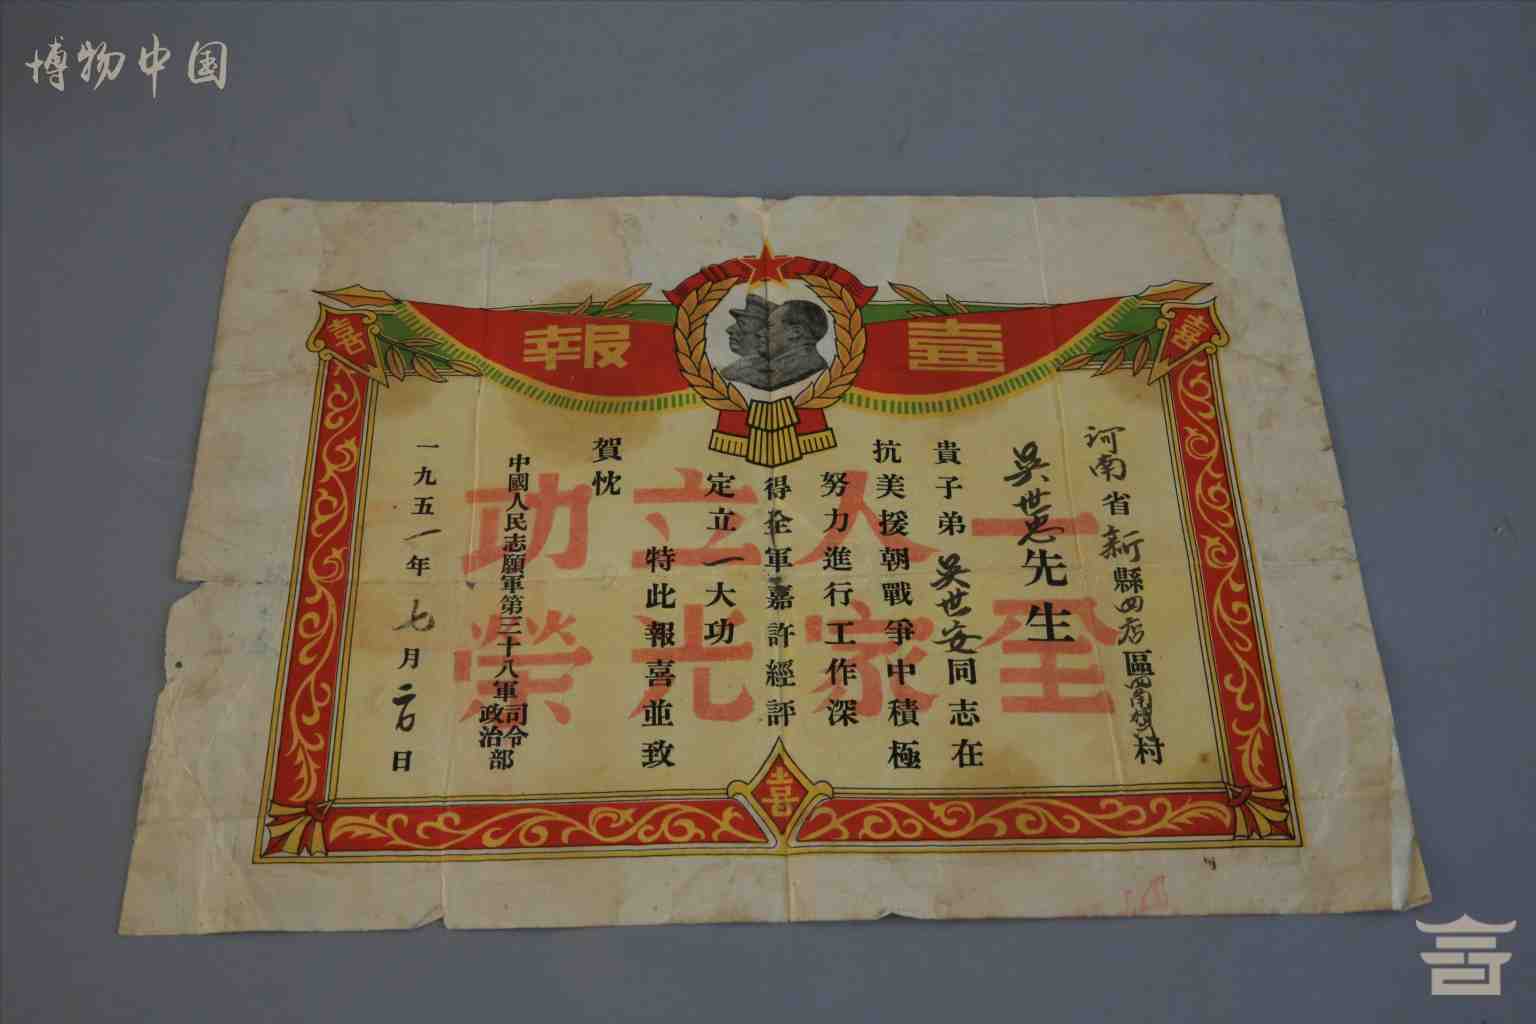 博物中国
喜報
喜
喜
河南省新縣四店區
村
吳世忠先生
貴子弟吳世安同志在
抗美援朝戰爭中積極
努力進行工作深
得全軍嘉許經評
定立一大功
特此報喜並致
賀忱
中國人民志願軍第三十八軍司令
政治部
一九五一年七月二日
一人立功
全家光榮
喜